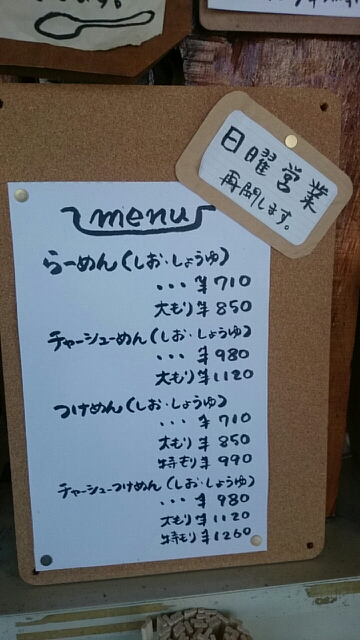 日曜営業
再開します。
menu
らーめん(しお・しょうゆ)
・・・ ¥710
大もり ¥850
チャーシューめん(しお・しょうゆ)
・・・ ¥980
大もり ¥1120
つけめん(しお・しょうゆ)
・・・ ¥710
大もり ¥850
特もり ¥990
チャーシューつけめん(しお・しょうゆ)
・・・ ¥980
大もり ¥1120
特もり ¥1260